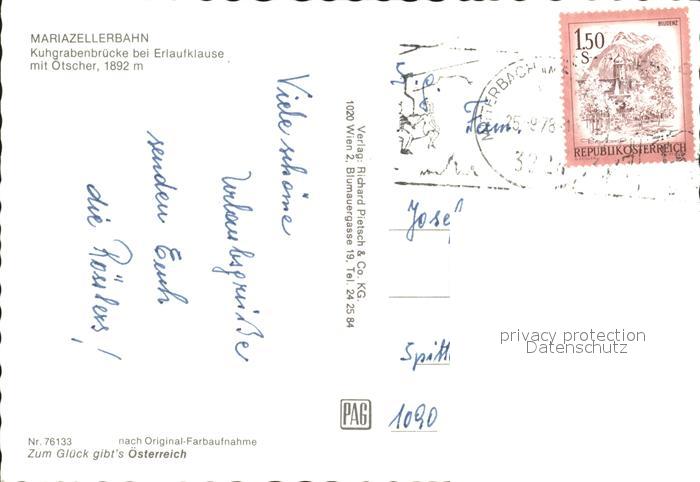 MARIAZELLERBAHN
Kuhgrabenbrücke bei Erlaufklause
mit Ötscher, 1892 m
Viele schöne
Urlaubsgrüße
senden Euch
die Rösslers!
Nr. 76133 nach Original-Farbaufnahme
Zum Glück gibt's Österreich
Verlag: Richard Pietsch & Co. KG.
1020 Wien 2, Blumauergasse 19, Tel. 24 25 84
PAG
BLUDENZ
1.50
S
REPUBLIK ÖSTERREICH
MITTERBACH
25.-9.78
Fam.
Josef
Spitt
1090
privacy protection
Datenschutz